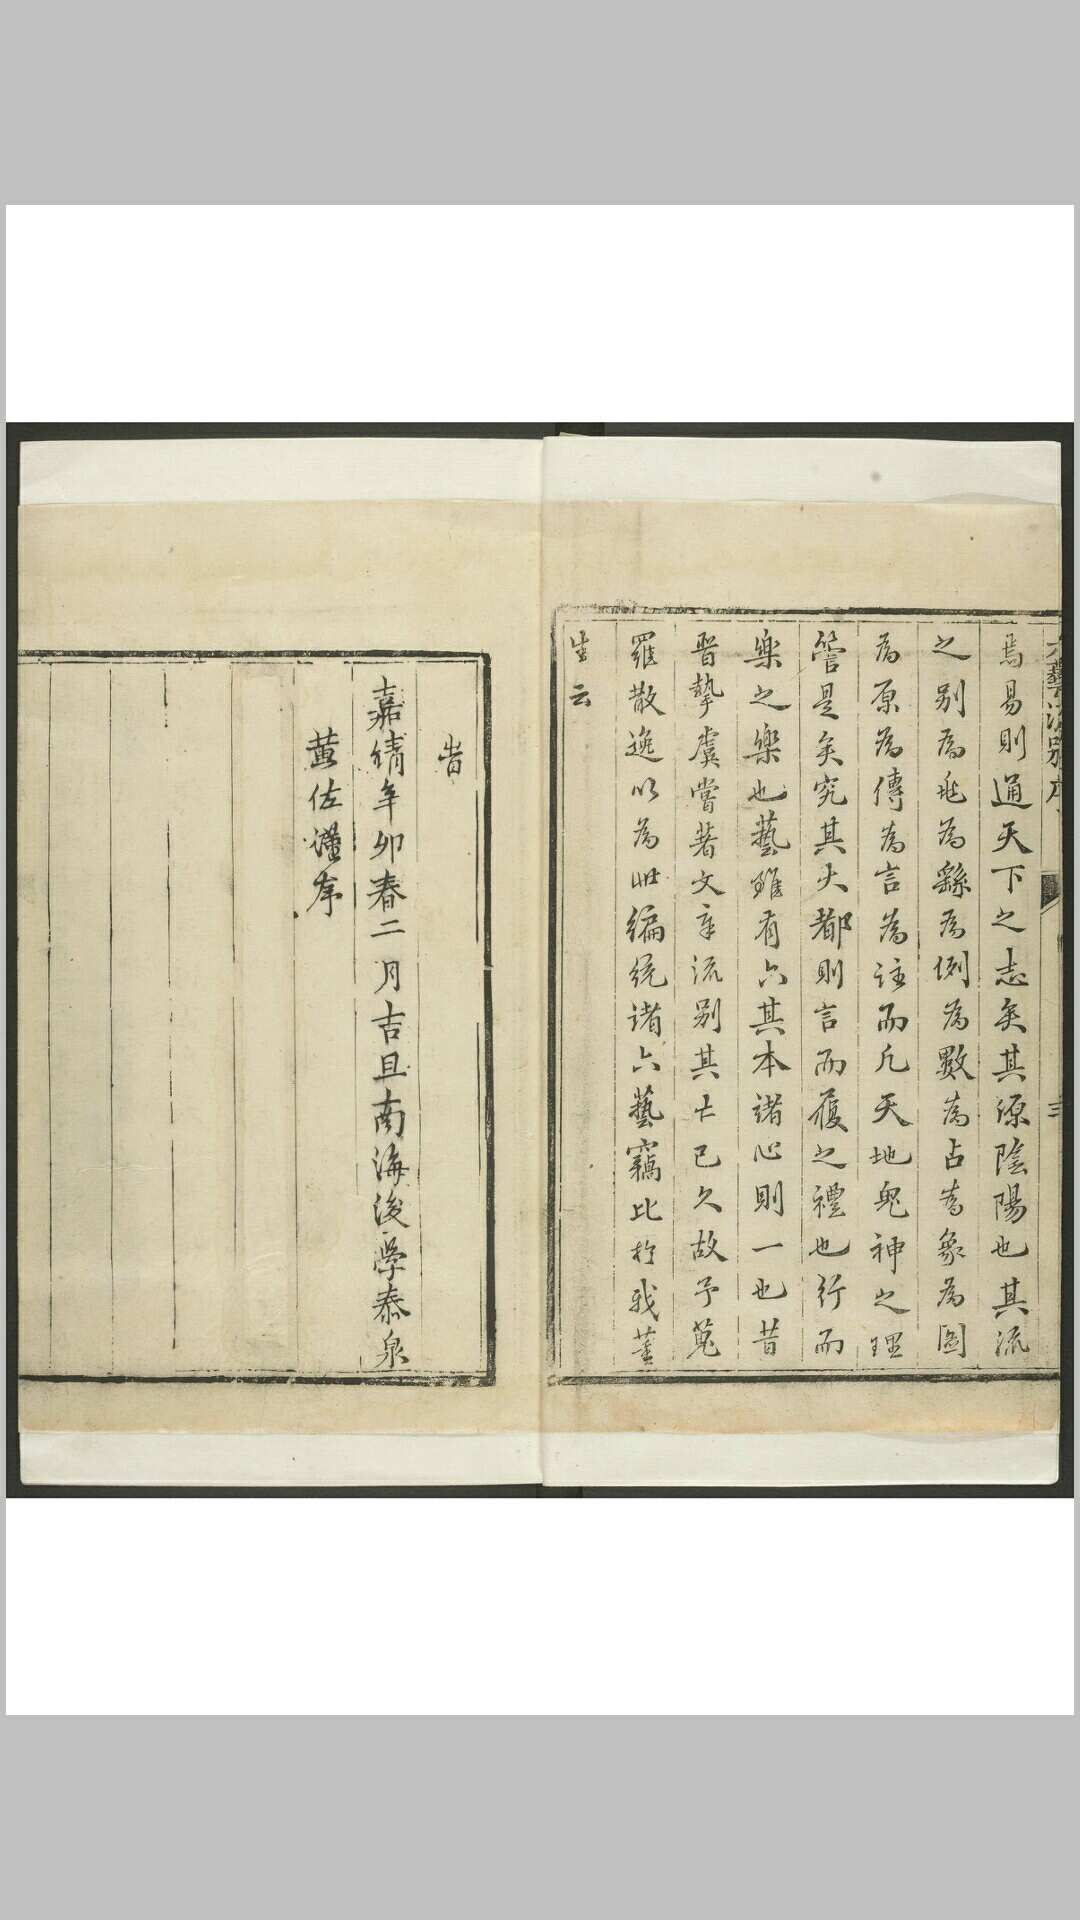 六藝流別序 三
焉易則通天下之志矣其源陰陽也其流
之別為兆為繇為例為數為占為象為圖
為原為傳為言為註而凡天地鬼神之理
管是矣究其大都則言而履之禮也行而
樂之樂也藝雖有六其本諸心則一也昔
晉摯虞嘗著文章流別其亡已久故予蒐
羅散逸以為此編統諸六藝竊比於我董
生云
旹
嘉靖辛卯春二月吉旦南海後學泰泉
黃佐謹序